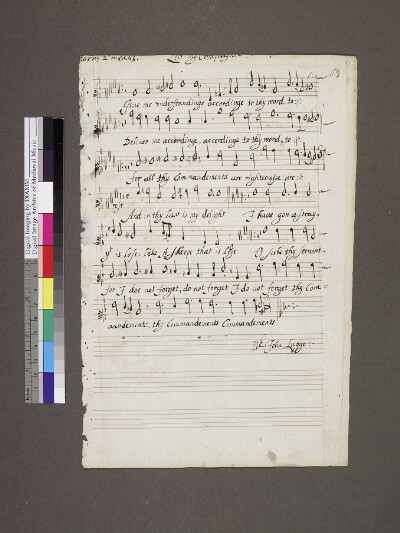 2 meanes
Let my Complaynt
63
Give me understandinge accordinge to thy word to
Deliver me accordinge, accordinge to thy word, to
for all thy Commandements are righteouse are
And in thy law is my delight I have gon astray,
yt is lost. like A sheepe that is lost O seke thy servant,
for I doe not forget, do not forget I do not forget thy Com=
mandements, thy Commandements Commandements
Mr. John Lugge
Digital Imaging by DIAMM
Digital Image Archive of Medieval Music